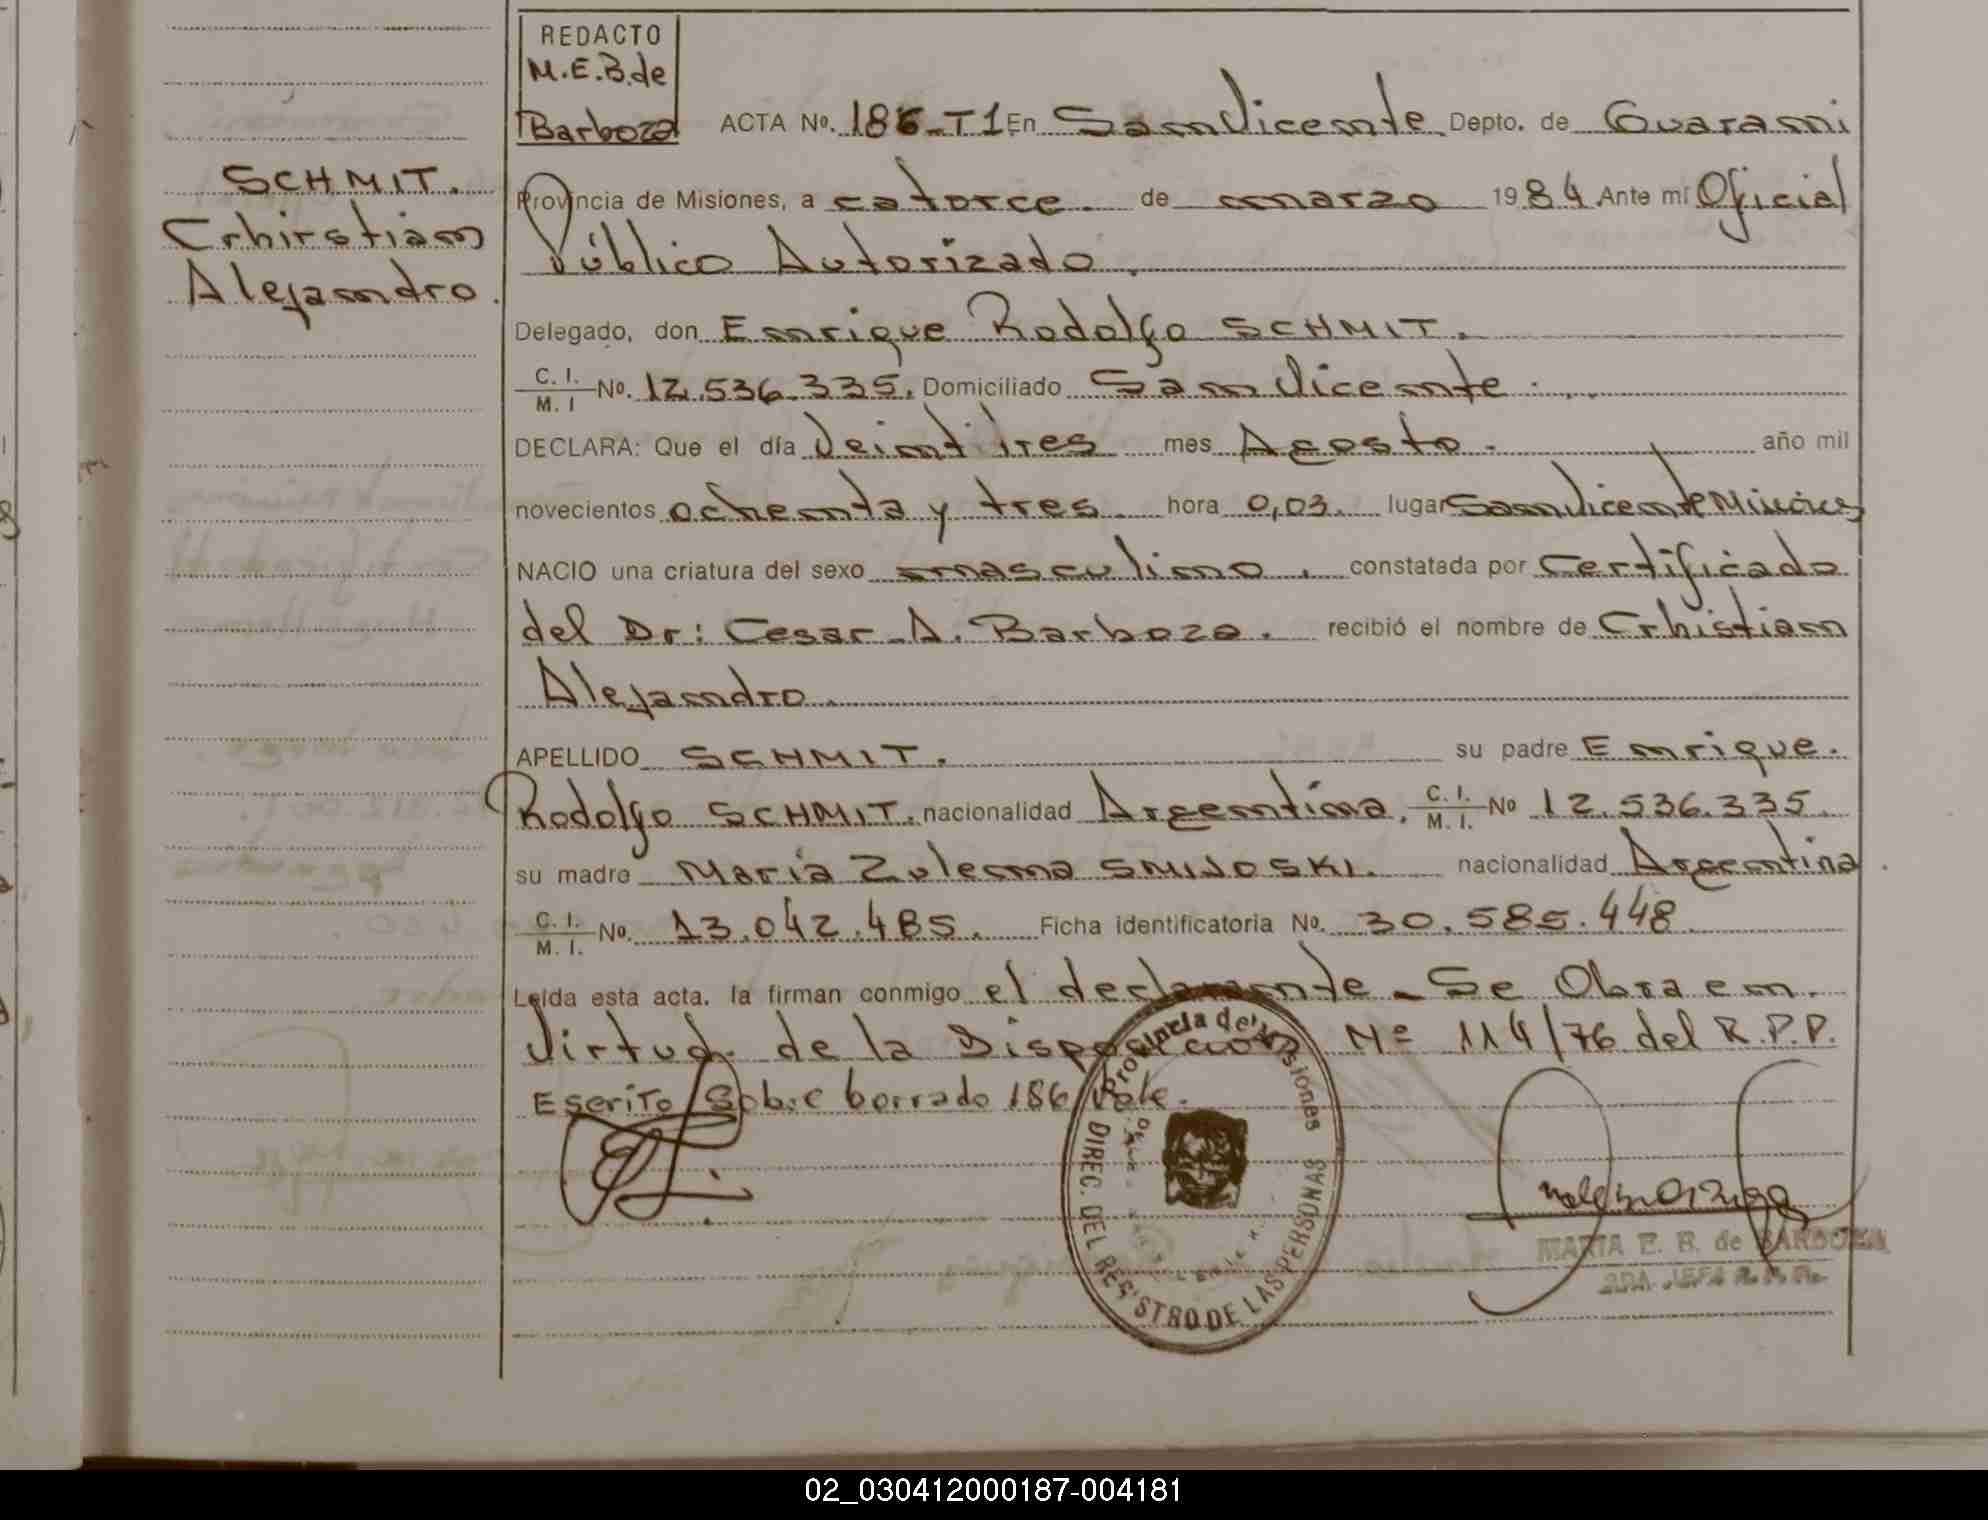 REDACTO
M.E.B.de
Barboza
ACTA Nº. 186-T1 En San Vicente Depto. de Guarani
SCHMIT.
Crhirstian
Alejandro.
Provincia de Misiones, a catorce. de marzo 1984 Ante mí Oficial
Público Autorizado.
Delegado, don Enrique Rodolfo SCHMIT.
C. I. / M. I Nº. 12.536.335. Domiciliado San Vicente.
DECLARA: Que el día Veintitres mes Agosto. año mil
novecientos ochenta y tres. hora 0,03. lugar San Vicente Misiones
NACIO una criatura del sexo masculino, constatada por Certificado
del Dr: Cesar A. Barboza. recibió el nombre de Crhistian
Alejandro.
APELLIDO SCHMIT. su padre Enrique.
Rodolfo SCHMIT. nacionalidad Argentina. C. I. / M. I. Nº 12.536.335.
su madre Maria Zulema SMIVOSKI. nacionalidad Argentina.
C. I. / M. I. Nº. 13.042.485. Ficha identificatoria Nº. 30.585.448
Leída esta acta. la firman conmigo el declarante - Se Obra en.
Virtud de la Disposicion Nº 114/76 del R.P.P.
Escrito Sobre borrado 186 Vale.
Provincia de Misiones
DIREC. DEL REGISTRO DE LAS PERSONAS
MARIA E. B. de BARBOZA
02_030412000187-004181